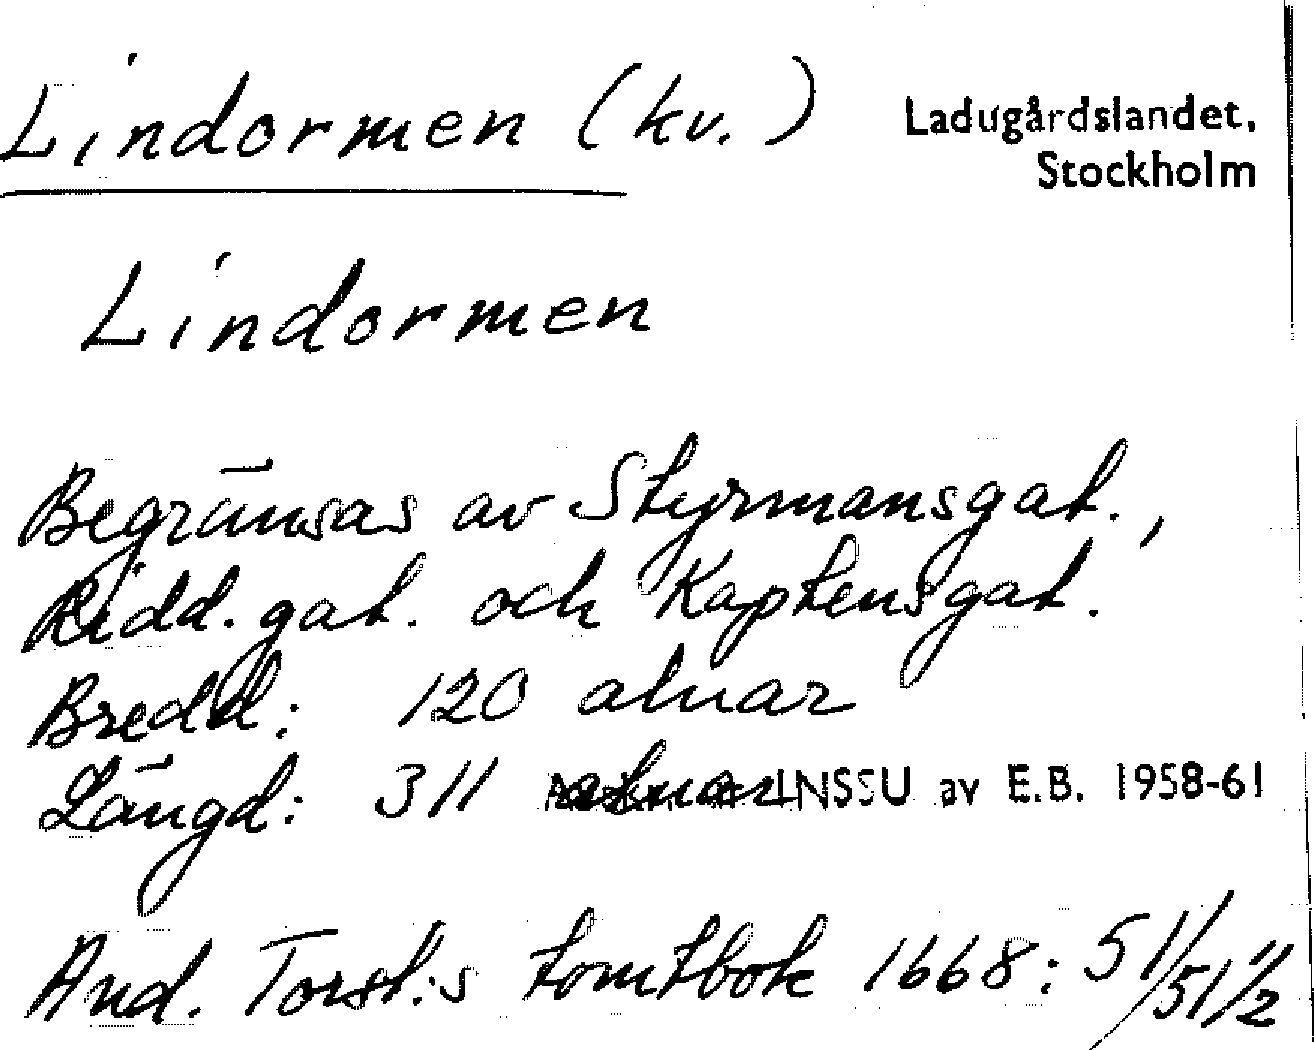 Lindormen (kv.)
Ladugårdslandet,
Stockholm
Lindormen
Begränsas av Styrmansgat.,
Ridd.gat. och Kaptensgat.
Bredd: 120 alnar
Längd: 311 alnar
INSSU av E.B. 1958-61
And. Torst:s tomtbok 1668: